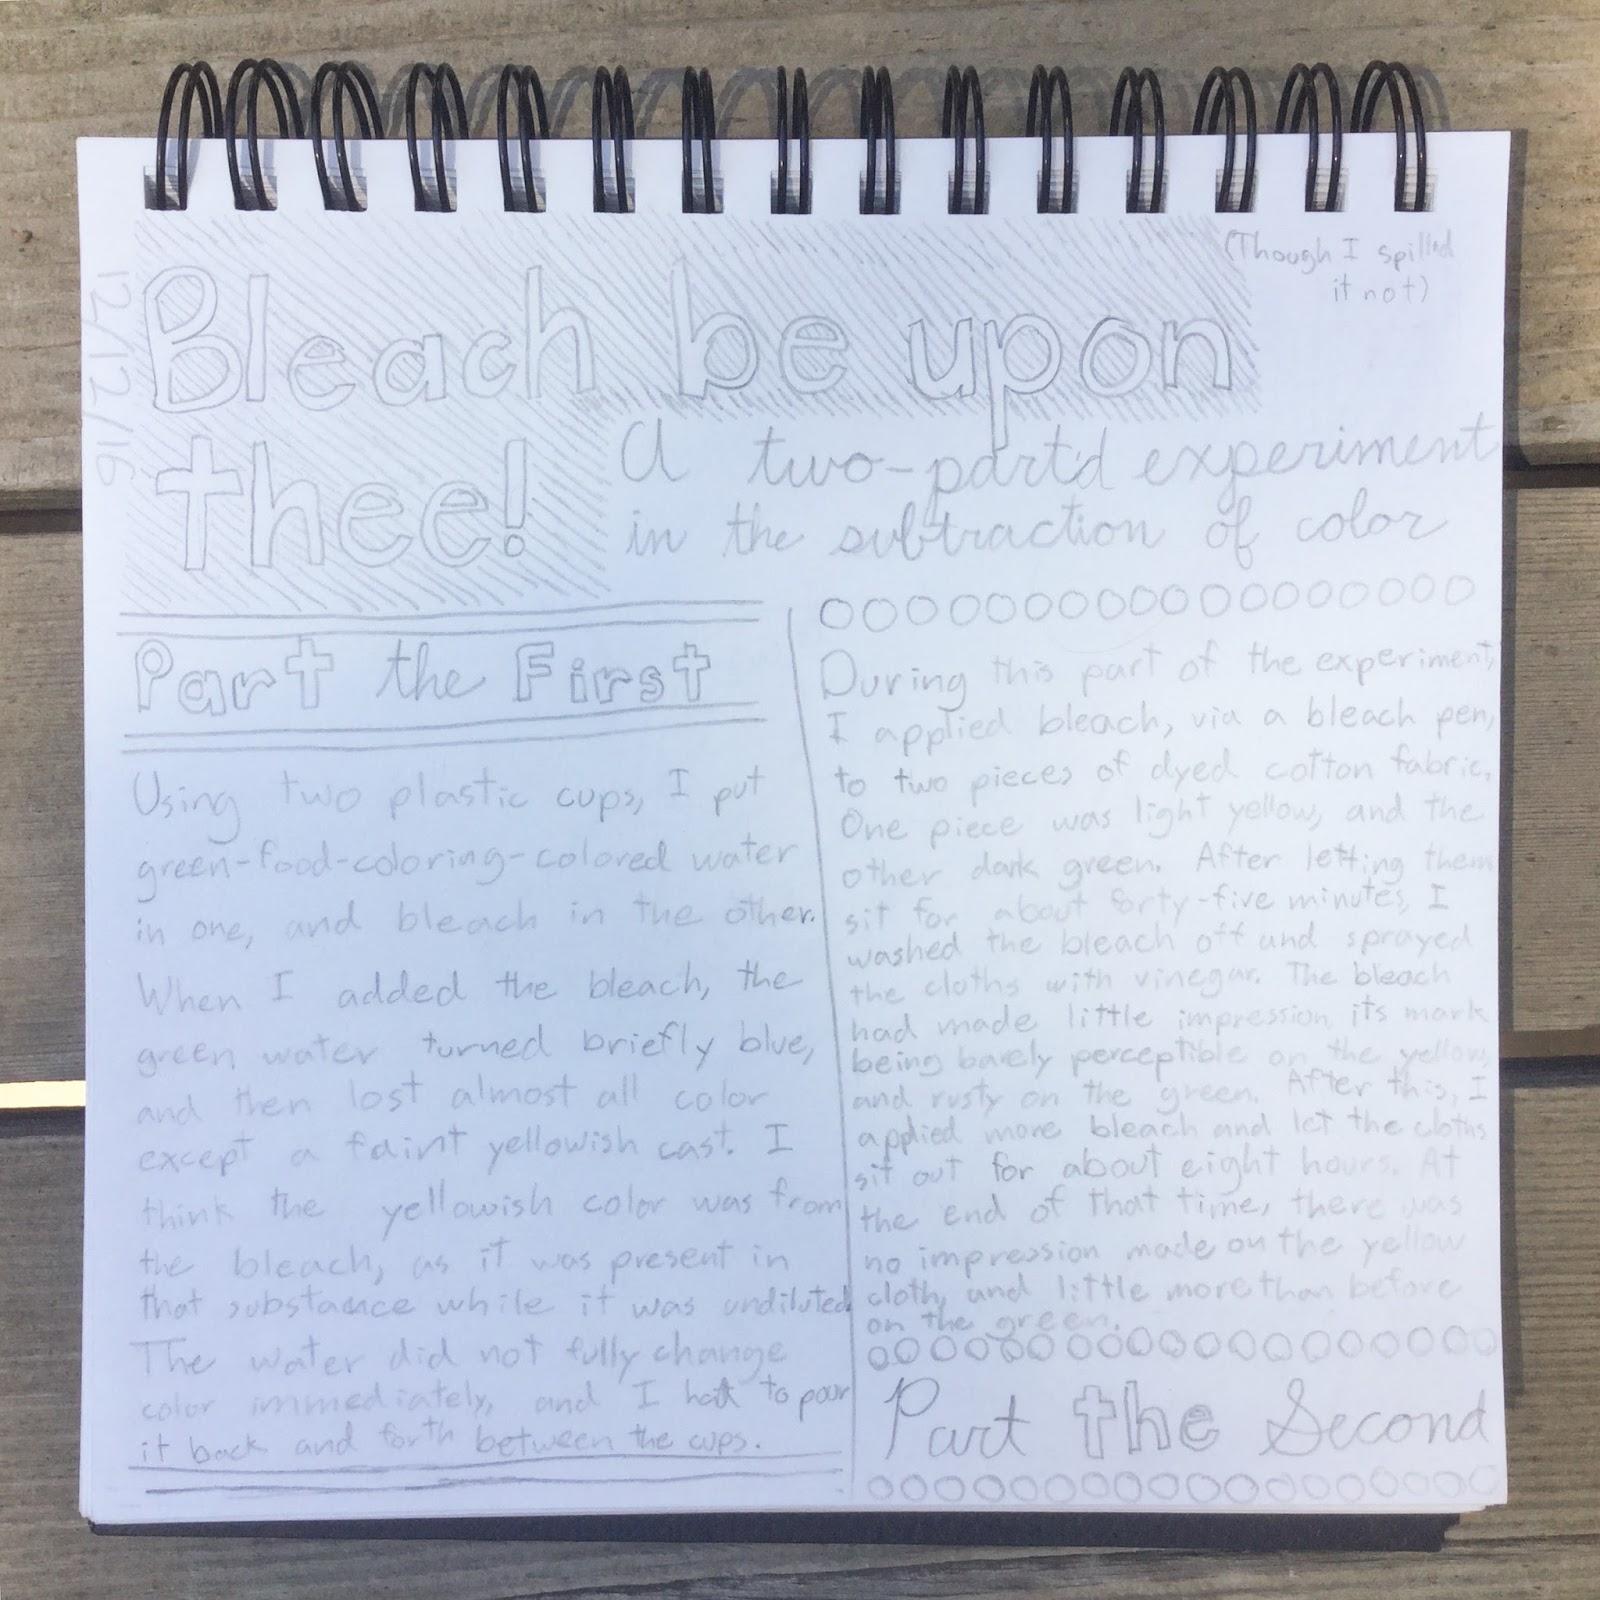 12/12/16
(Though I spilled
it not)
Bleach be upon
thee!
A two-part'd experiment
in the subtraction of color
Part the First
Using two plastic cups, I put
green-food-coloring-colored water
in one, and bleach in the other.
When I added the bleach, the
green water turned briefly blue,
and then lost almost all color
except a faint yellowish cast. I
think the yellowish color was from
the bleach, as it was present in
that substance while it was undiluted.
The water did not fully change
color immediately, and I had to pour
it back and forth between the cups.
During this part of the experiment,
I applied bleach, via a bleach pen,
to two pieces of dyed cotton fabric.
One piece was light yellow, and the
other dark green. After letting them
sit for about forty-five minutes, I
washed the bleach off and sprayed
the cloths with vinegar. The bleach
had made little impression, its mark
being barely perceptible on the yellow,
and rusty on the green. After this, I
applied more bleach and let the cloths
sit out for about eight hours. At
the end of that time, there was
no impression made on the yellow
cloth, and little more than before
on the green.
Part the Second